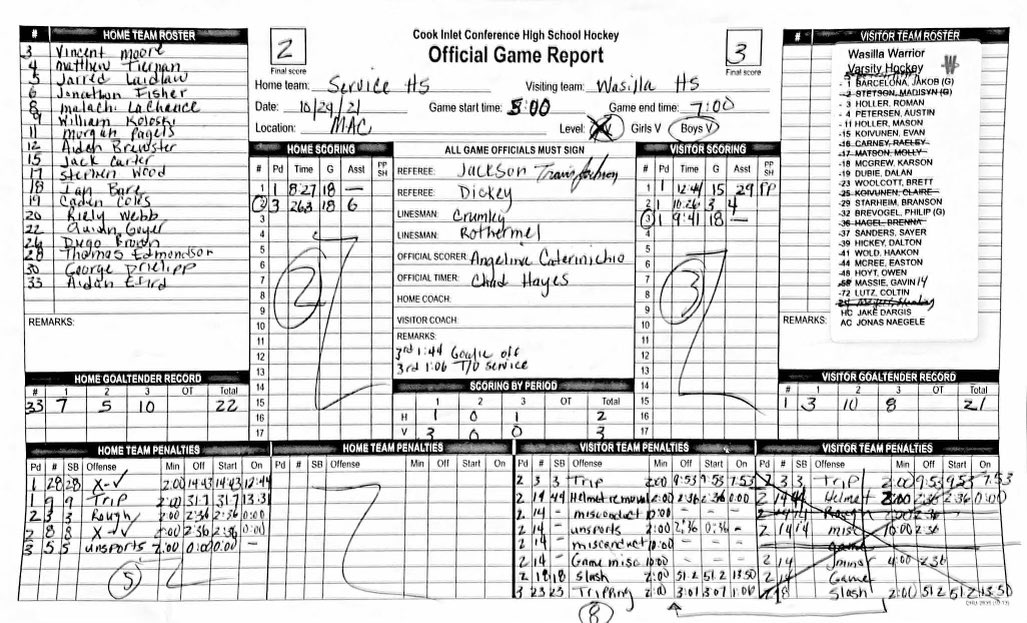 Cook Inlet Conference High School Hockey
Official Game Report
2
Final score
3
Final score
Home team: Service HS
Visiting team: Wasilla HS
Date: 10/29/21
Game start time: 5:00
Game end time: 7:00
Location: MAC
Level: Girls V Boys V
# HOME TEAM ROSTER
3 Vincent Moore
4 Matthew Tiernan
5 Jarred Laidlaw
6 Jonathon Fisher
8 Malachi LaChance
9 William Koloski
11 Morgan Pagels
12 Aidan Brewster
15 Jack Carter
17 Stephen Wood
18 Ian Bare
19 Caden Coles
20 Riely Webb
22 Geyer
26 Brown
28 Thomas Edmondson
30 George
33 Aidan Efird
REMARKS:
HOME SCORING
# Pd Time G Asst PP SH
1 1 8:27 18 —
2 3 263 18 6
3
4
5
6
7
8
9
10
11
12
13
14
15
16
17
2
ALL GAME OFFICIALS MUST SIGN
REFEREE: Jackson
REFEREE: Dickey
LINESMAN: Crumley
LINESMAN: Rothermel
OFFICIAL SCORER: Angelina Caterinichio
OFFICIAL TIMER: Chad Hayes
HOME COACH:
VISITOR COACH:
REMARKS:
3rd 1:44 Goalie off
3rd 1:06 T/O Service
SCORING BY PERIOD
1 2 3 OT Total
H 1 0 1 2
V 3 0 0 3
VISITOR SCORING
# Pd Time G Asst PP SH
1 1 12:44 15 29 PP
2 1 10:26 3 4
3 1 9:41 18 —
4
5
6
7
8
9
10
11
12
13
14
15
16
17
3
# VISITOR TEAM ROSTER
Wasilla Warrior
Varsity Hockey
- 1 BARCELONA, JAKOB (G)
- 2 STETSON, MADISYN (G)
- 3 HOLLER, ROMAN
- 4 PETERSEN, AUSTIN
- 11 HOLLER, MASON
-15 KOIVUNEN, EVAN
-16 CARNEY, RAELEY
-17 MATSON, MOLLY
-18 MCGREW, KARSON
-19 DUBIE, DALAN
-23 WOOLCOTT, BRETT
-25 KOIVUNEN, CLAIRE
-29 STARHEIM, BRANSON
-32 BREVOGEL, PHILIP (G)
-36 HAGEL, BRENNA
-37 SANDERS, SAYER
-39 HICKEY, DALTON
-41 WOLD, HAAKON
-44 MCREE, EASTON
-48 HOYT, OWEN
-58 MASSIE, GAVIN 14
-72 LUTZ, COLTIN
HC JAKE DARGIS
AC JONAS NAEGELE
REMARKS:
HOME GOALTENDER RECORD
# 1 2 3 OT Total
33 7 5 10 22
VISITOR GOALTENDER RECORD
# 1 2 3 OT Total
1 3 10 8 21
HOME TEAM PENALTIES
Pd # SB Offense Min Off Start On
1 28 28 X-✓ 2:00 14:43 14:43 12:44
1 9 9 Trip 2:00 31.7 31.7 13:31
2 3 3 Rough 2:00 2:36 2:36 0:00
2 8 8 X-✓ 2:00 2:36 2:36 0:00
3 5 5 unsports 2:00 0:00 0:00 -
5
HOME TEAM PENALTIES
Pd # SB Offense Min Off Start On
VISITOR TEAM PENALTIES
Pd # SB Offense Min Off Start On
2 3 3 Trip 2:00 9:53 9:53 7:53
2 14 44 Helmet removal 2:00 2:36 2:36 0:00
2 14 - misconduct 10:00
2 14 - unsports 2:00 2:36 0:36 -
2 14 - misconduct 10:00
2 14 - Game misc 10:00
2 18 18 Slash 2:00 51.2 51.2 13:50
3 23 23 Tripping 2:00 3:07 3:07 1:00
8
VISITOR TEAM PENALTIES
Pd # SB Offense Min Off Start On
2 3 3 Trip 2:00 9:53 9:53 7:53
2 14 44 Helmet 2:00 2:36 2:36 0:00
2 14 14 Rough 2:00 2:36
2 14 14 misc 10:00 2:36
game
2 14 4:00 2:36
2 14 Game
2 18 Slash 2:00 51.2 51.2 13:50